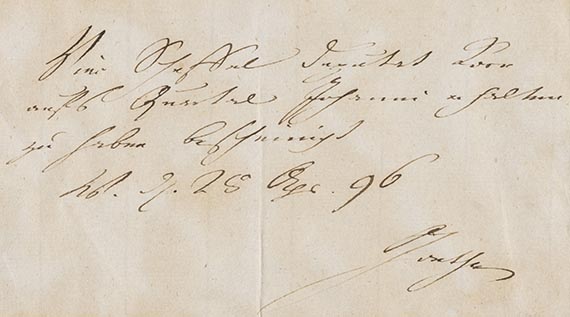 Vier Scheffel Deputat Korn
aufs Quartal Johanni erhalten
zu haben bescheinigt
W. d. 28 Apr. 96
Goethe